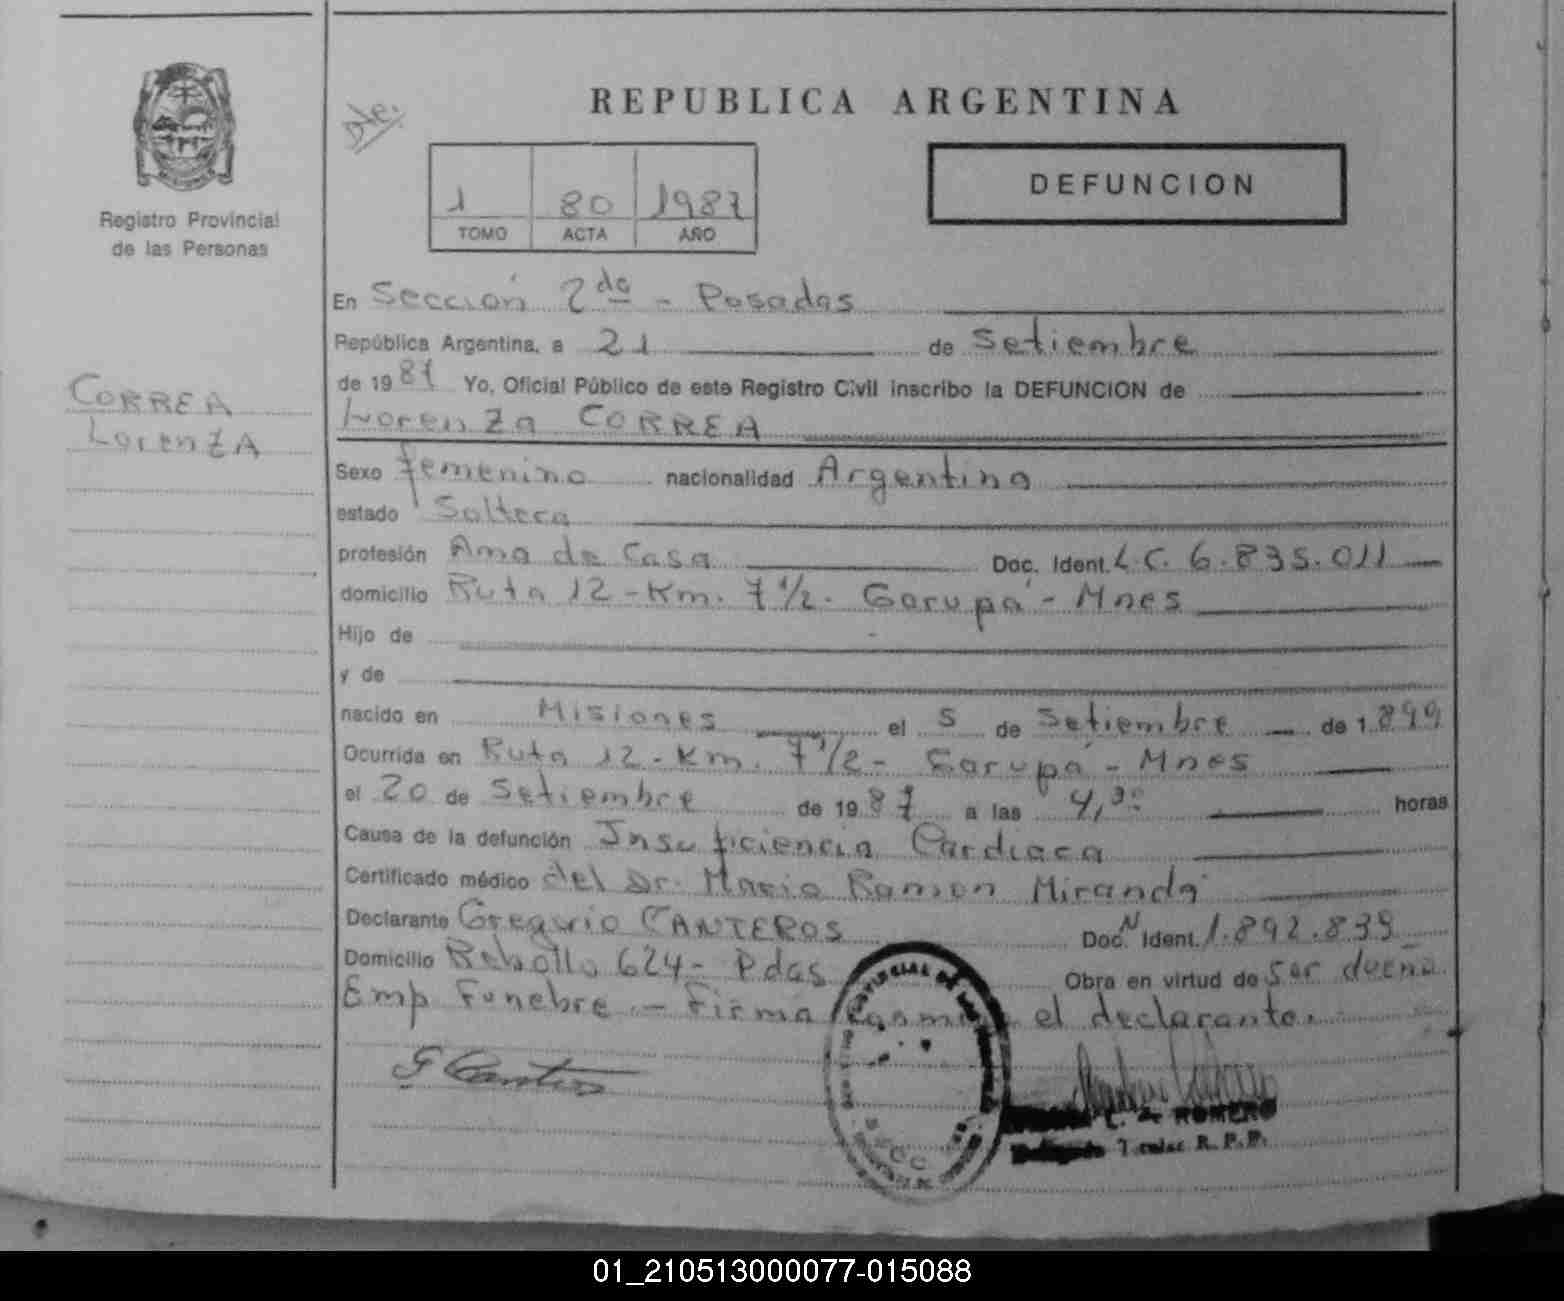 Registro Provincial
de las Personas
CORREA
LorenZA
Dte.
REPUBLICA ARGENTINA
1 80 1987
TOMO ACTA AÑO
DEFUNCION
En Sección 2da - Posadas
República Argentina, a 21 de Setiembre
de 1987 Yo, Oficial Público de este Registro Civil inscribo la DEFUNCION de
LorenZa CORREA
Sexo femenino nacionalidad Argentina
estado Soltera
profesión Ama de Casa Doc. Ident. L.C. 6.835.011
domicilio Ruta 12 - Km. 7 1/2. Garupá - Mnes
Hijo de
y de
nacido en Misiones el 5 de Setiembre de 1.899
Ocurrida en Ruta 12 - Km. 7 1/2 - Garupá - Mnes
el 20 de Setiembre de 1987 a las 4,30 horas
Causa de la defunción Insuficiencia Cardiaca
Certificado médico del Dr. Mario Ramon Miranda
Declarante Gregorio CANTEROS Doc. N Ident. 1.892.839
Domicilio Rebollo 624 - Pdas Obra en virtud de ser dueño
Emp Funebre. - Firma conmigo el declarante.
G Canteros
L. A. ROMERO
Titular R. P. P.
01_210513000077-015088